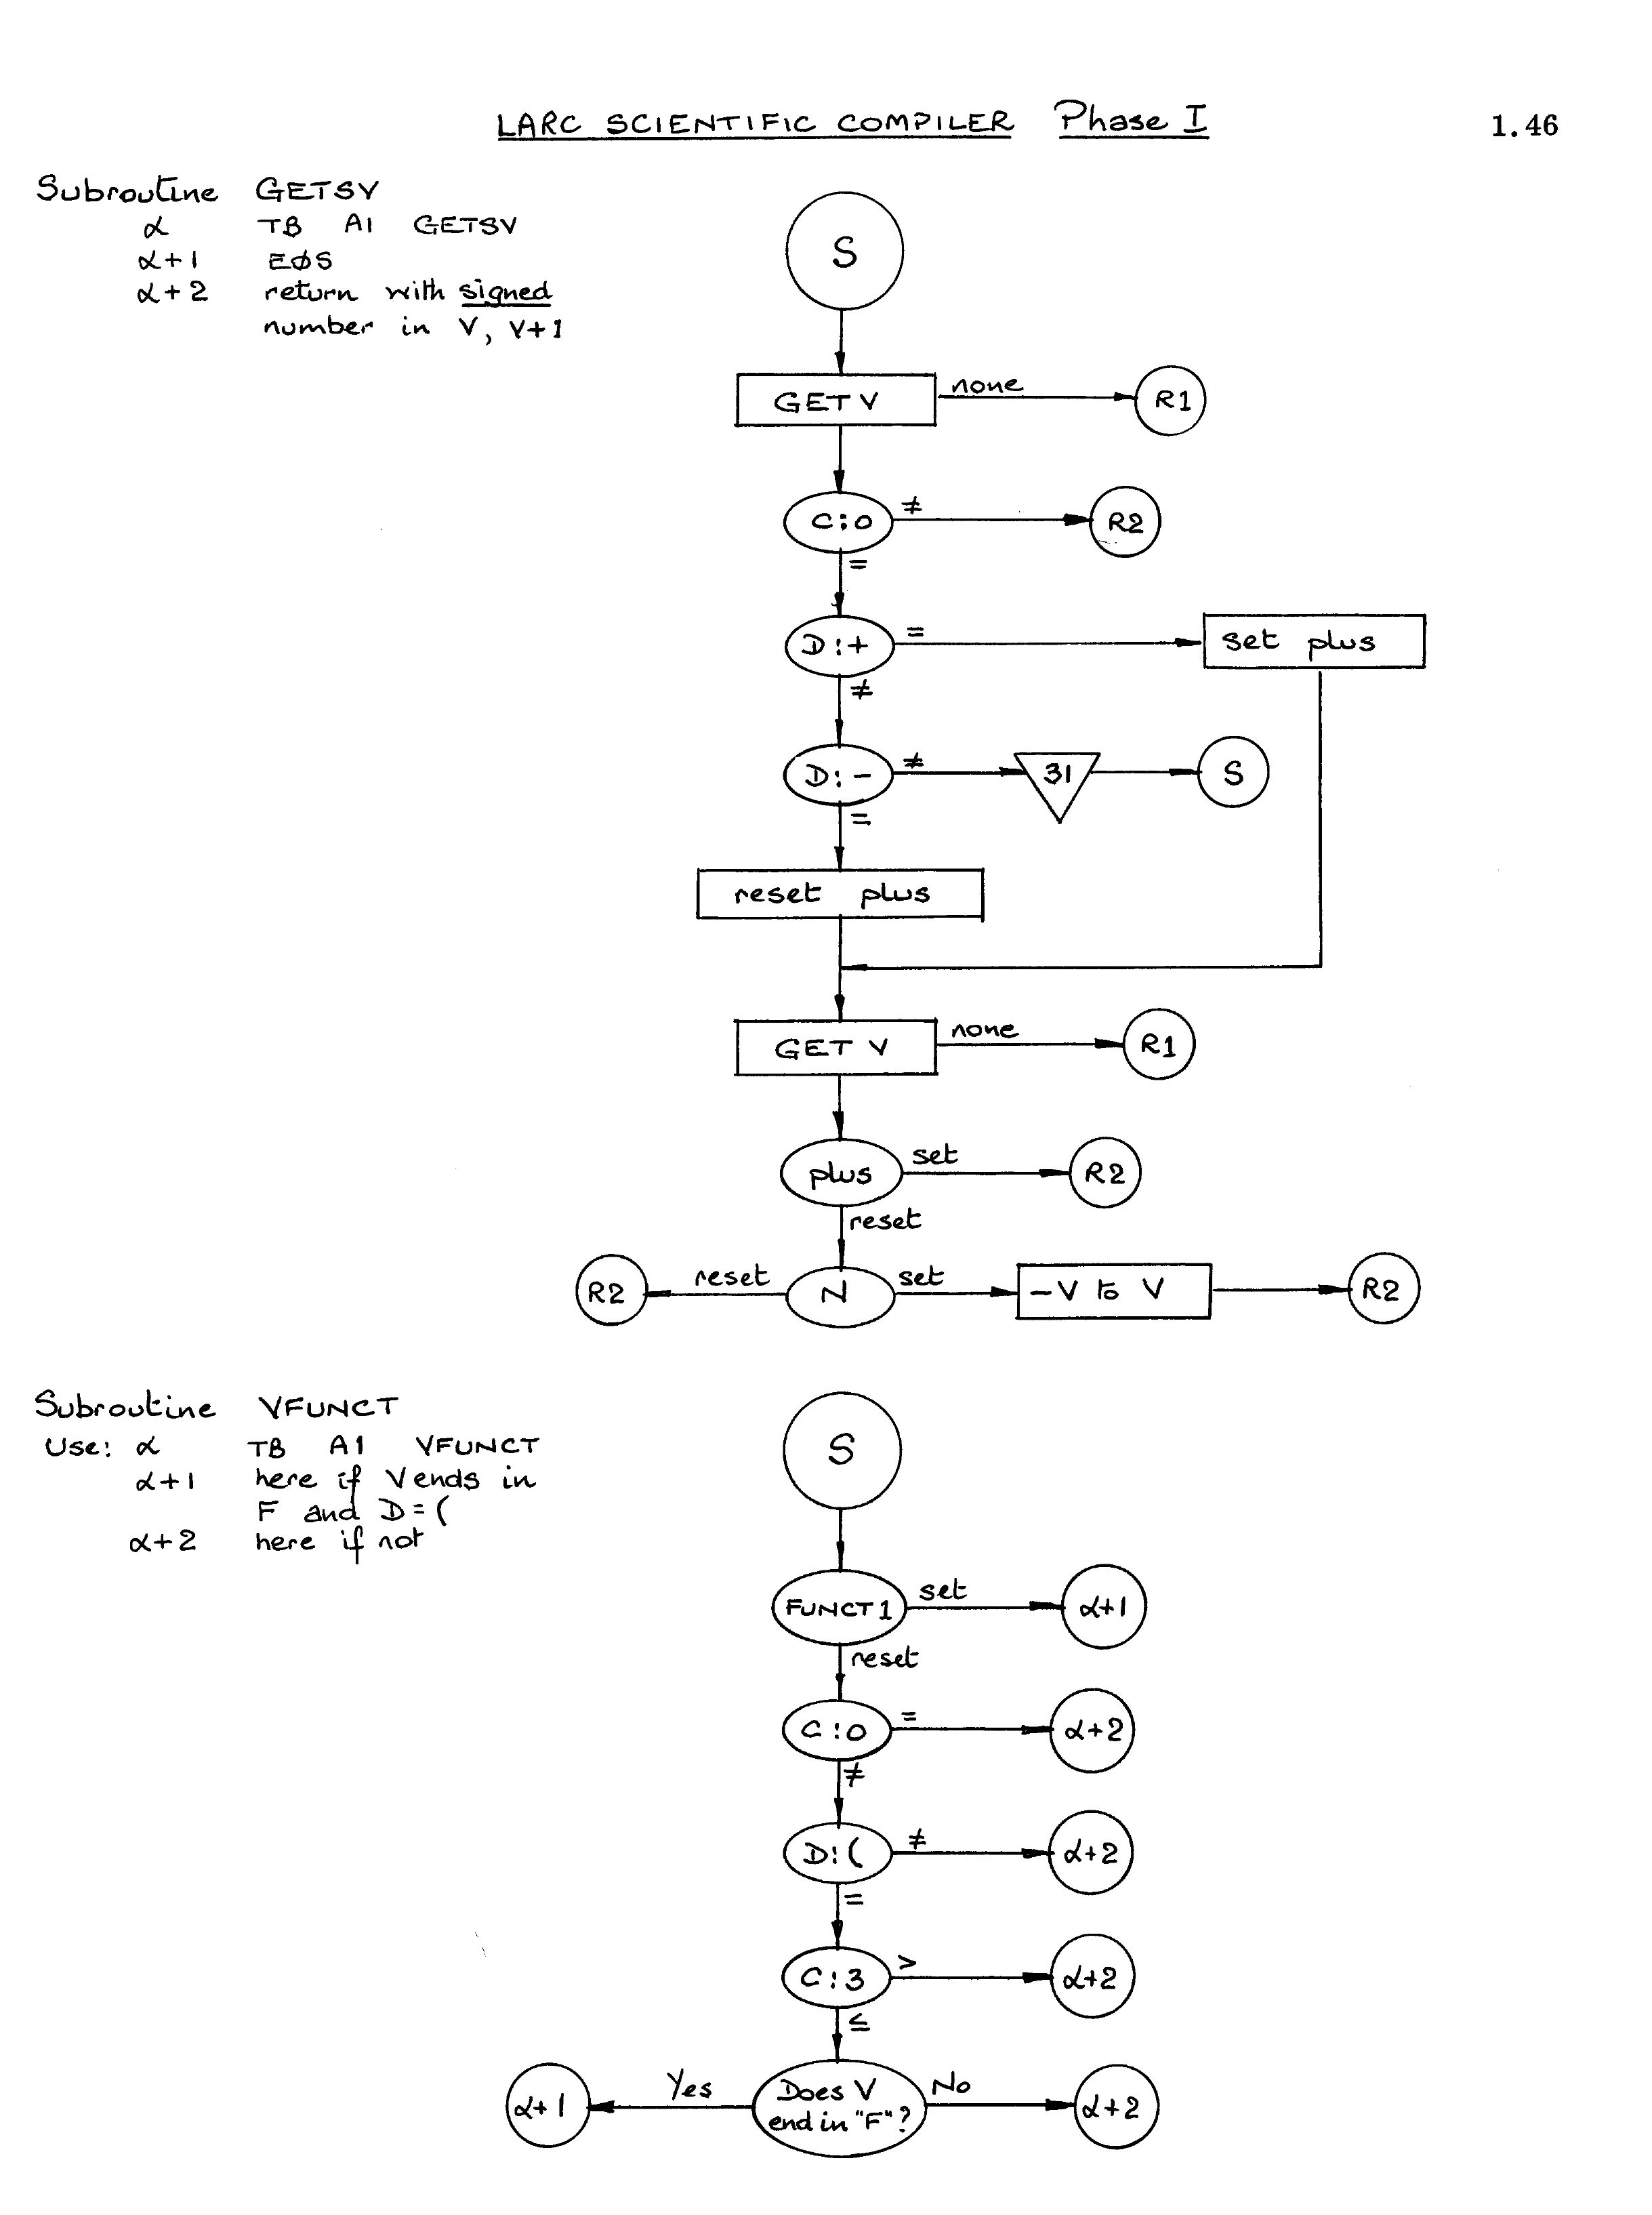 LARC SCIENTIFIC COMPILER Phase I
1.46
Subroutine GETSV
α TB A1 GETSV
α+1 EØS
α+2 return with signed
number in V, V+1
S
GETV
none
R1
C:0
≠
R2
=
D:+
=
set plus
≠
D:-
≠
31
S
=
reset plus
GET V
none
R1
plus
set
R2
reset
R2
reset
N
set
-V to V
R2
Subroutine VFUNCT
Use: α TB A1 VFUNCT
α+1 here if V ends in
F and D=(
α+2 here if not
S
FUNCT1
set
α+1
reset
C:0
=
α+2
≠
D:(
≠
α+2
=
C:3
>
α+2
≤
α+1
Yes
Does V
end in "F"?
No
α+2